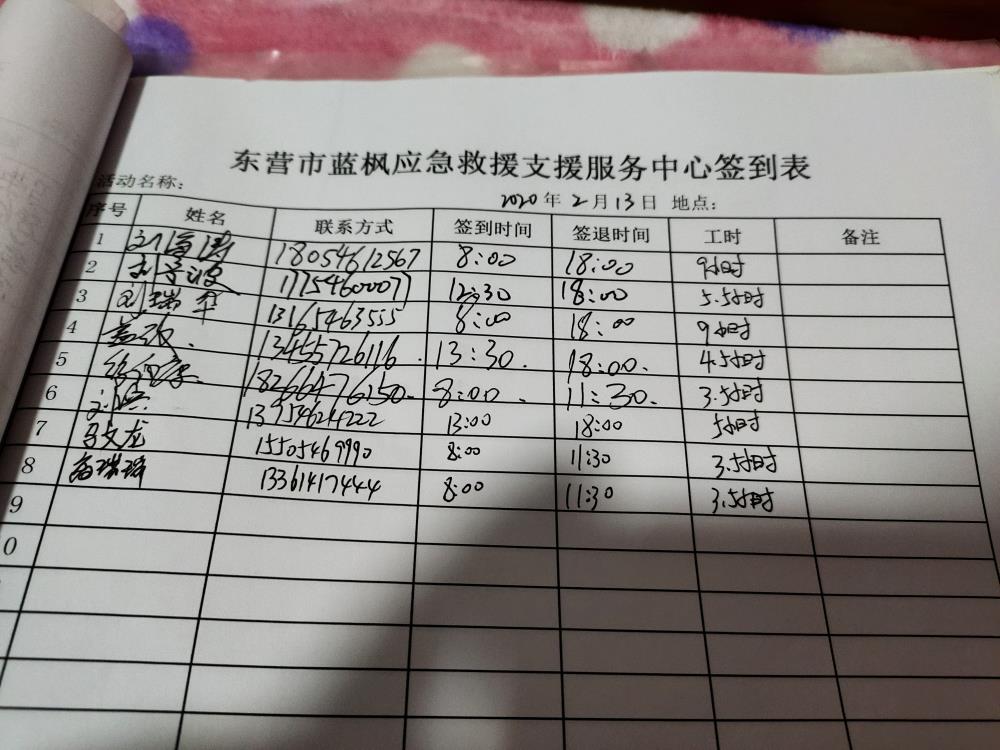 东营市蓝枫应急救援支援服务中心签到表
活动名称： 2020年2月13日 地点：
序号 姓名 联系方式 签到时间 签退时间 工时 备注
1 刘海涛 18054612567 8:00 18:00 9小时
2 17754600077 12:30 18:00 5.5小时
3 刘瑞华 13165463555 8:00 18:00 9小时
4 13455726116 13:30 18:00 4.5小时
5 18266476150 8:00 11:30 3.5小时
6 13954624222 13:00 18:00 5小时
7 马文龙 15505469990 8:00 11:30 3.5小时
8 13361417444 8:00 11:30 3.5小时
9
0